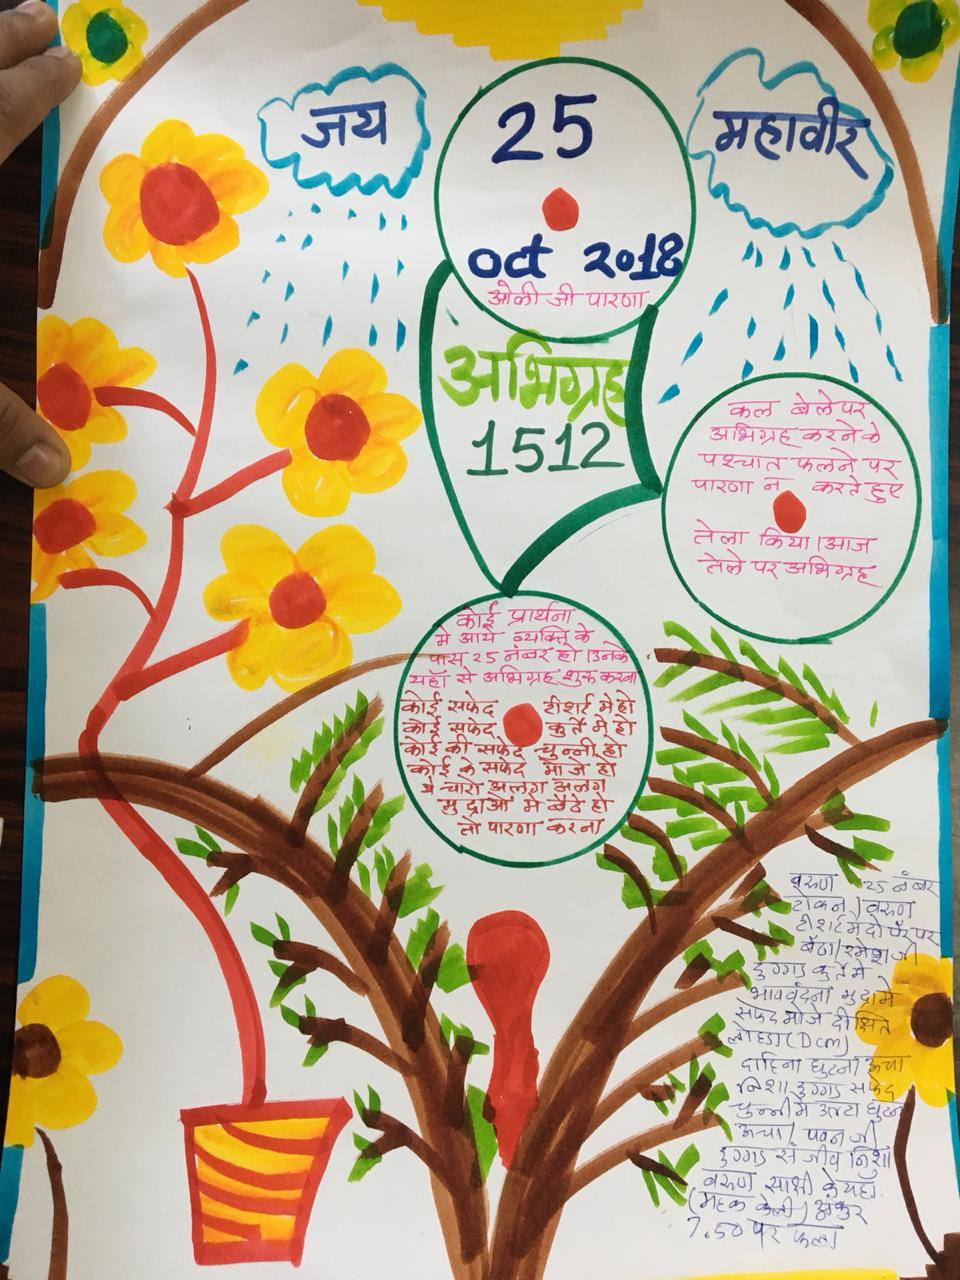 जय
महावीर
25
Oct 2018
ओली जी पारणा
अभिग्रह
1512
कल बेले पर
अभिग्रह करने के
पश्चात फलने पर
पारणा न करते हुए
तेला किया। आज
तेले पर अभिग्रह
कोई प्रार्थना
मे आये व्यक्ति के
पास 25 नंबर हो। उनके
यहाँ से अभिग्रह शुरू करना
कोई सफेद टीशर्ट मे हो
कोई सफेद कुर्ते मे हो
कोई की सफेद चुन्नी हो
कोई के सफेद मोजे हो
ये चारो अलग अलग
मुद्राओं मे बैठे हो
तो पारणा करना
वरुण 25 नंबर
टोकन। वरुण
टीशर्ट मे दो पैर पर
बैठा। रमेश जी
डुग्गड कुर्ते मे
भाववंदना मुद्रा मे
सफेद मोजे दीक्षित
लोढा (Dcm)
दाहिना घुटना ऊंचा
निशा डुग्गड सफेद
चुन्नी मे उल्टा घुटना
ऊंचा। पवन जी
डुग्गड संजीव निशा
वरुण साक्षी के यहाँ
(महक केली) अंकुर
7.50 पर फला